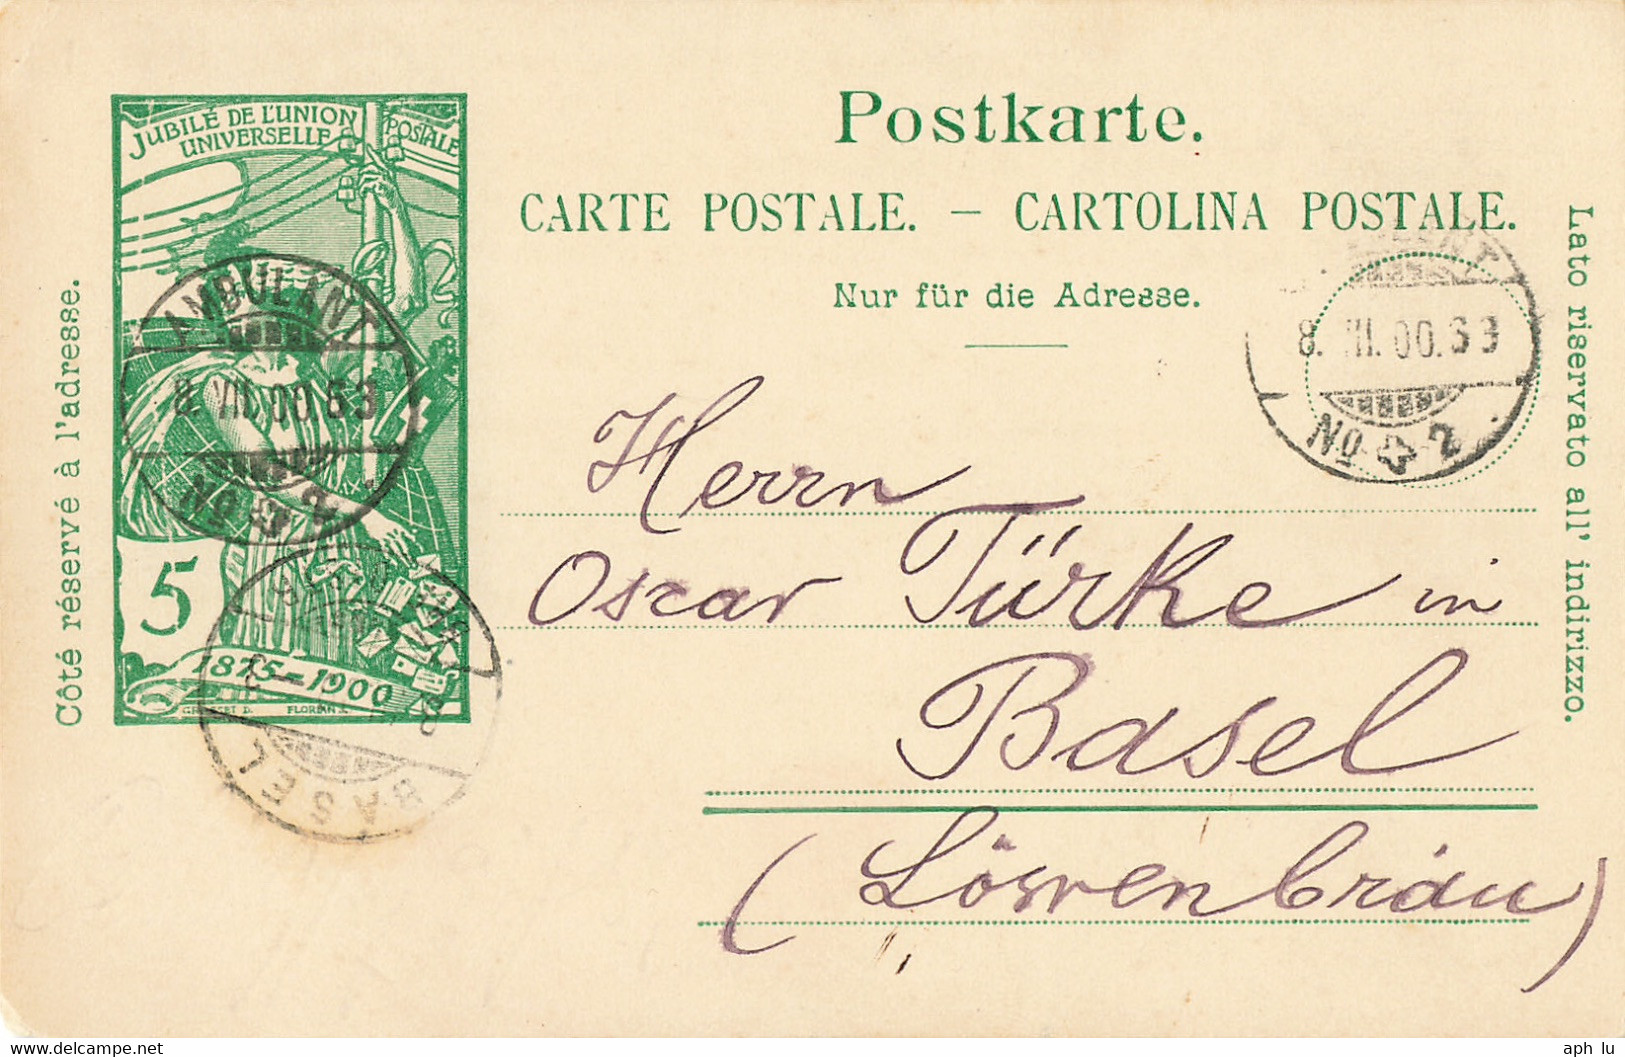 Postkarte.
CARTE POSTALE. — CARTOLINA POSTALE.
Nur für die Adresse.
Côté réservé à l'adresse.
Lato riservato all' indirizzo.
JUBILÉ DE L'UNION
UNIVERSELLE POSTALE
5
1875–1900
GRASSET D. FLORIAN
AMBULANT
8. VII. 00.
No 2
8. VII. 00.
No 2
BASEL
Herrn
Oscar Türke in
Basel
(Löwenbräu)
www.delcampe.net
aph_lu